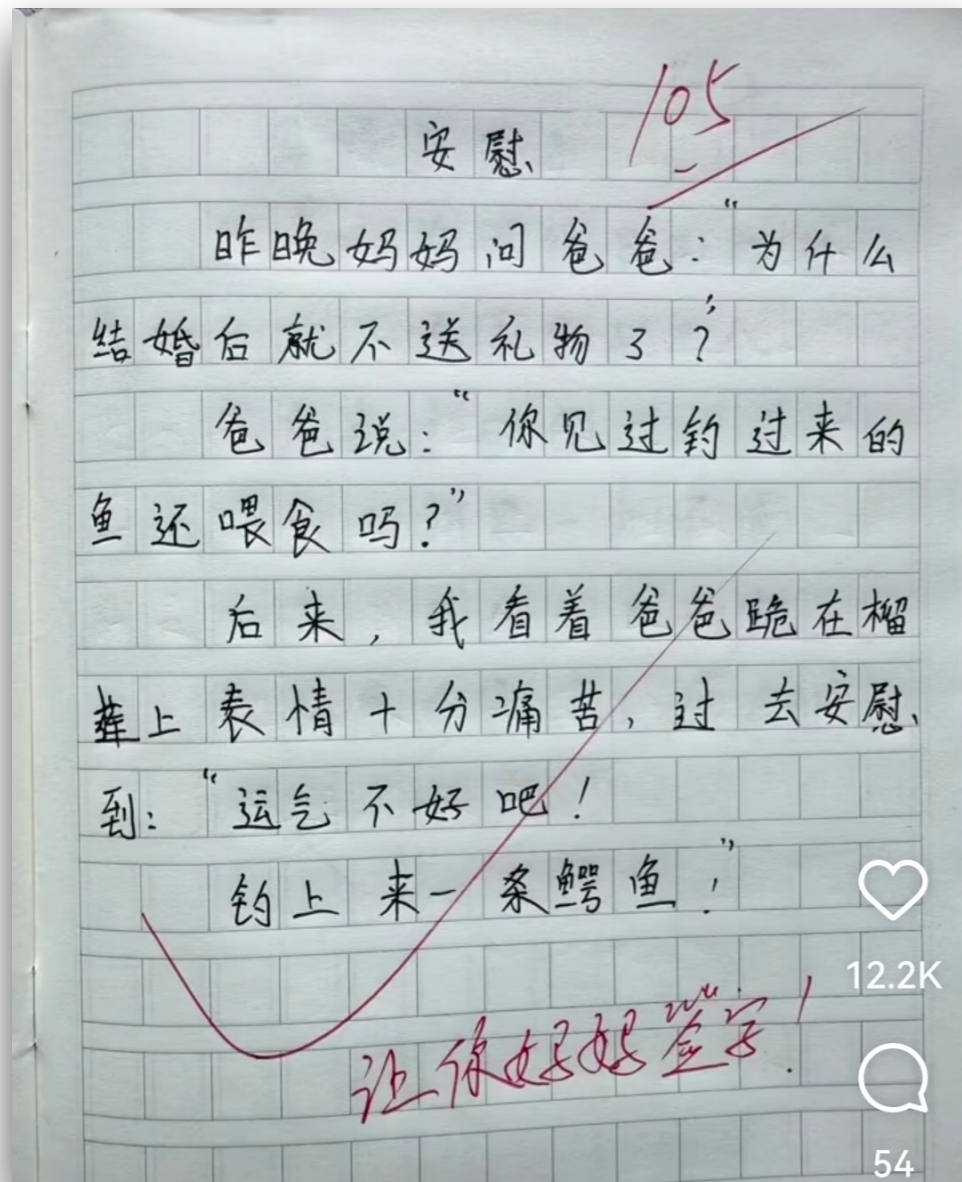 105
安慰
昨晚妈妈问爸爸:“为什么
结婚后就不送礼物了?”
爸爸说:“你见过钓过来的
鱼还喂食吗?”
后来,我看着爸爸跪在榴
莲上表情十分痛苦,过去安慰
到:“运气不好吧!
钓上来一条鳄鱼!”
12.2K
让你妈妈签字!
54